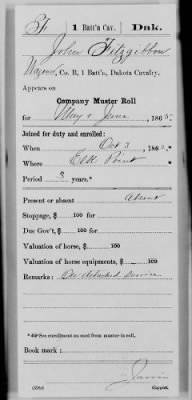 F | 1 Batt'n Cav. | Dak.
John Fitzgibbon
Wagoner, Co. B, 1 Batt'n, Dakota Cavalry.
Appears on
Company Muster Roll
for May & June, 1865.
Joined for duty and enrolled:
When Oct 3, 186
Where Elk Point
Period 3 years.*
Present or absent Absent
Stoppage, $ 100 for
Due Gov't, $ 100 for
Valuation of horse, $ 100
Valuation of horse equipments, $ 100
Remarks: On detached service
*See enrollment on card from muster-in roll.
Book mark:
Copyist.